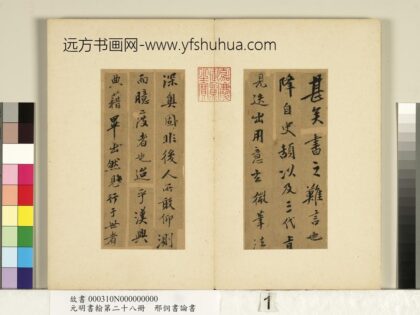 远方书画网-www.yfshuhua.com
甚矣書之難言也
降自史頡以及三代
迭出用意玄微筆法
深奧固非後人所敢仰測
而臆度者也迨乎漢興
典籍畢出然行于世者
故書 000310N000000000
元明書翰第二十八冊 邢侗書論書
1